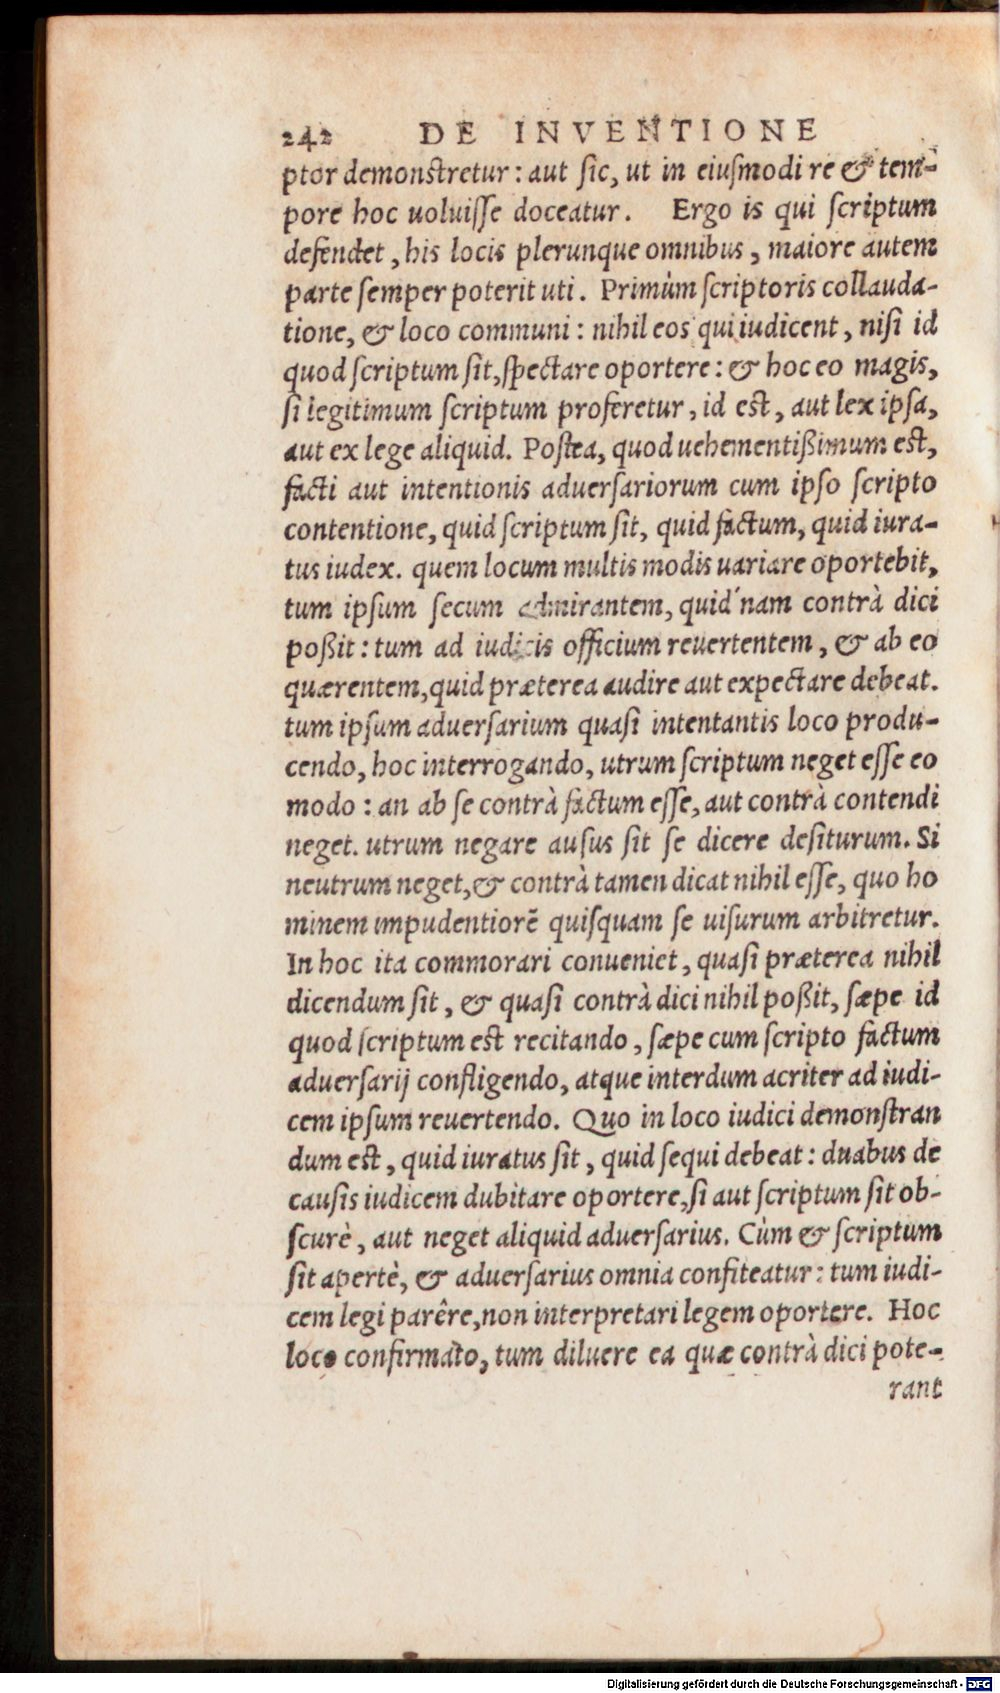 242 DE INVENTIONE
ptor demonstretur: aut sic, ut in eiusmodi re & tem-
pore hoc uoluisse doceatur. Ergo is qui scriptum
defendet, his locis plerunque omnibus, maiore autem
parte semper poterit uti. Primùm scriptoris collauda-
tione, & loco communi: nihil eos qui iudicent, nisi id
quod scriptum sit, spectare oportere: & hoc eo magis,
si legitimum scriptum proferetur, id est, aut lex ipsa,
aut ex lege aliquid. Postea, quod uehementißimum est,
facti aut intentionis aduersariorum cum ipso scripto
contentione, quid scriptum sit, quid factum, quid iura-
tus iudex. quem locum multis modis uariare oportebit,
tum ipsum secum admirantem, quid'nam contrà dici
poßit: tum ad iudicis officium reuertentem, & ab eo
quærentem, quid præterea audire aut expectare debeat.
tum ipsum aduersarium quasi intentantis loco produ-
cendo, hoc interrogando, utrum scriptum neget esse eo
modo: an ab se contrà factum esse, aut contrà contendi
neget. utrum negare ausus sit se dicere desiturum. Si
neutrum neget, & contrà tamen dicat nihil esse, quo ho
minem impudentiorē quisquam se uisurum arbitretur.
In hoc ita commorari conueniet, quasi præterea nihil
dicendum sit, & quasi contrà dici nihil poßit, sæpe id
quod scriptum est recitando, sæpe cum scripto factum
aduersarij confligendo, atque interdum acriter ad iudi-
cem ipsum reuertendo. Quo in loco iudici demonstran
dum est, quid iuratus sit, quid sequi debeat: duabus de
causis iudicem dubitare oportere, si aut scriptum sit ob-
scurè, aut neget aliquid aduersarius. Cùm & scriptum
sit apertè, & aduersarius omnia confiteatur: tum iudi-
cem legi parêre, non interpretari legem oportere. Hoc
loco confirmato, tum diluere ea quæ contrà dici pote-
rant
Digitalisierung gefördert durch die Deutsche Forschungsgemeinschaft - DFG